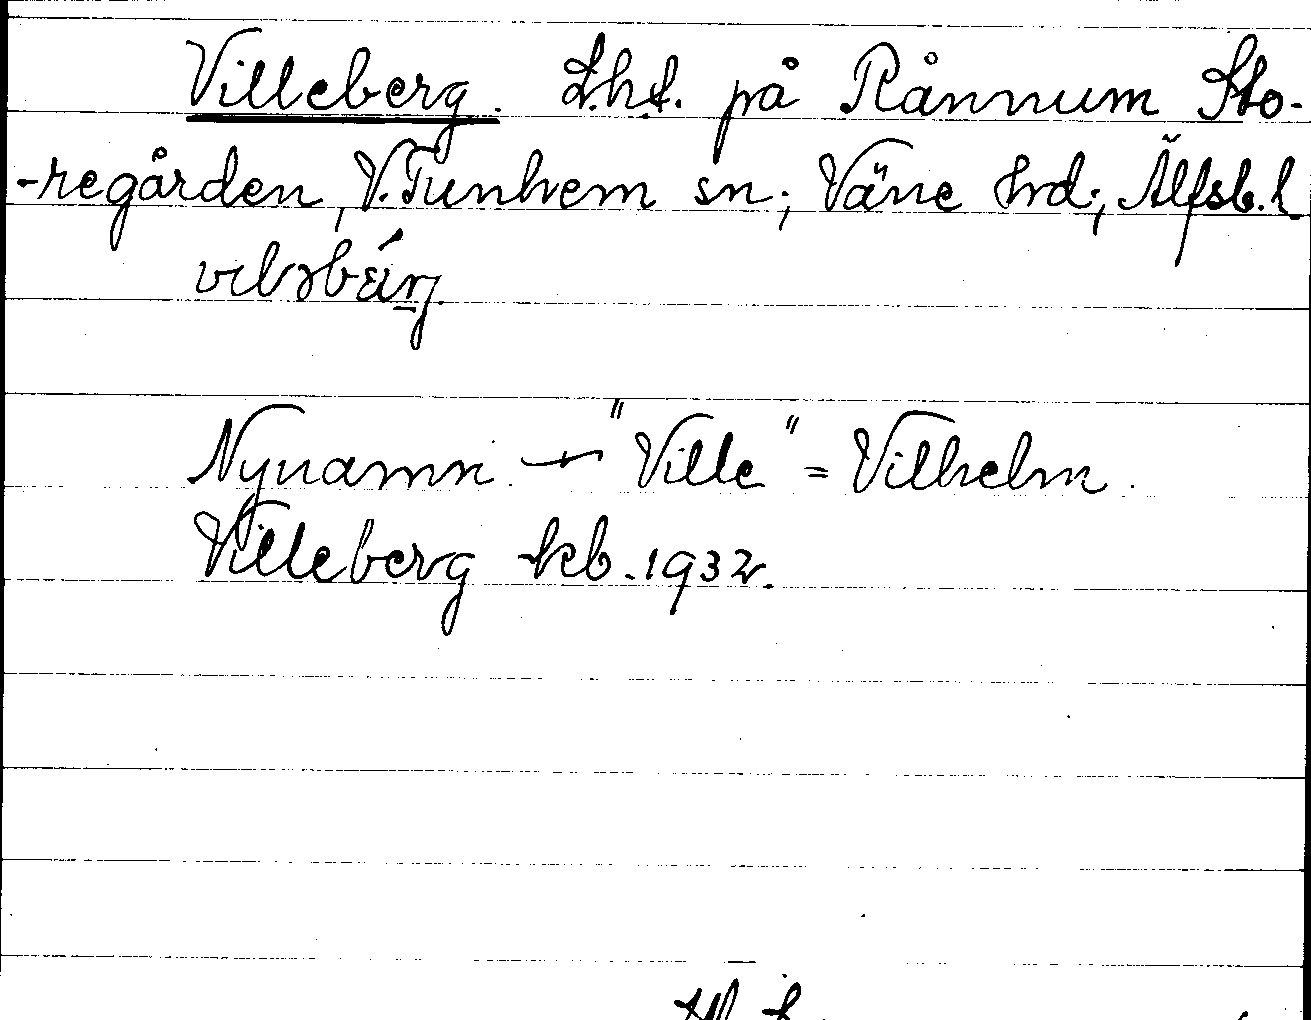 Villeberg. L.h.t. på Rånnum Sto-
-regården, V. Tunhem sn; Väne hrd; Älfsb. l
Nynamn "Ville" = Vilhelm.
Villeberg kb. 1932.